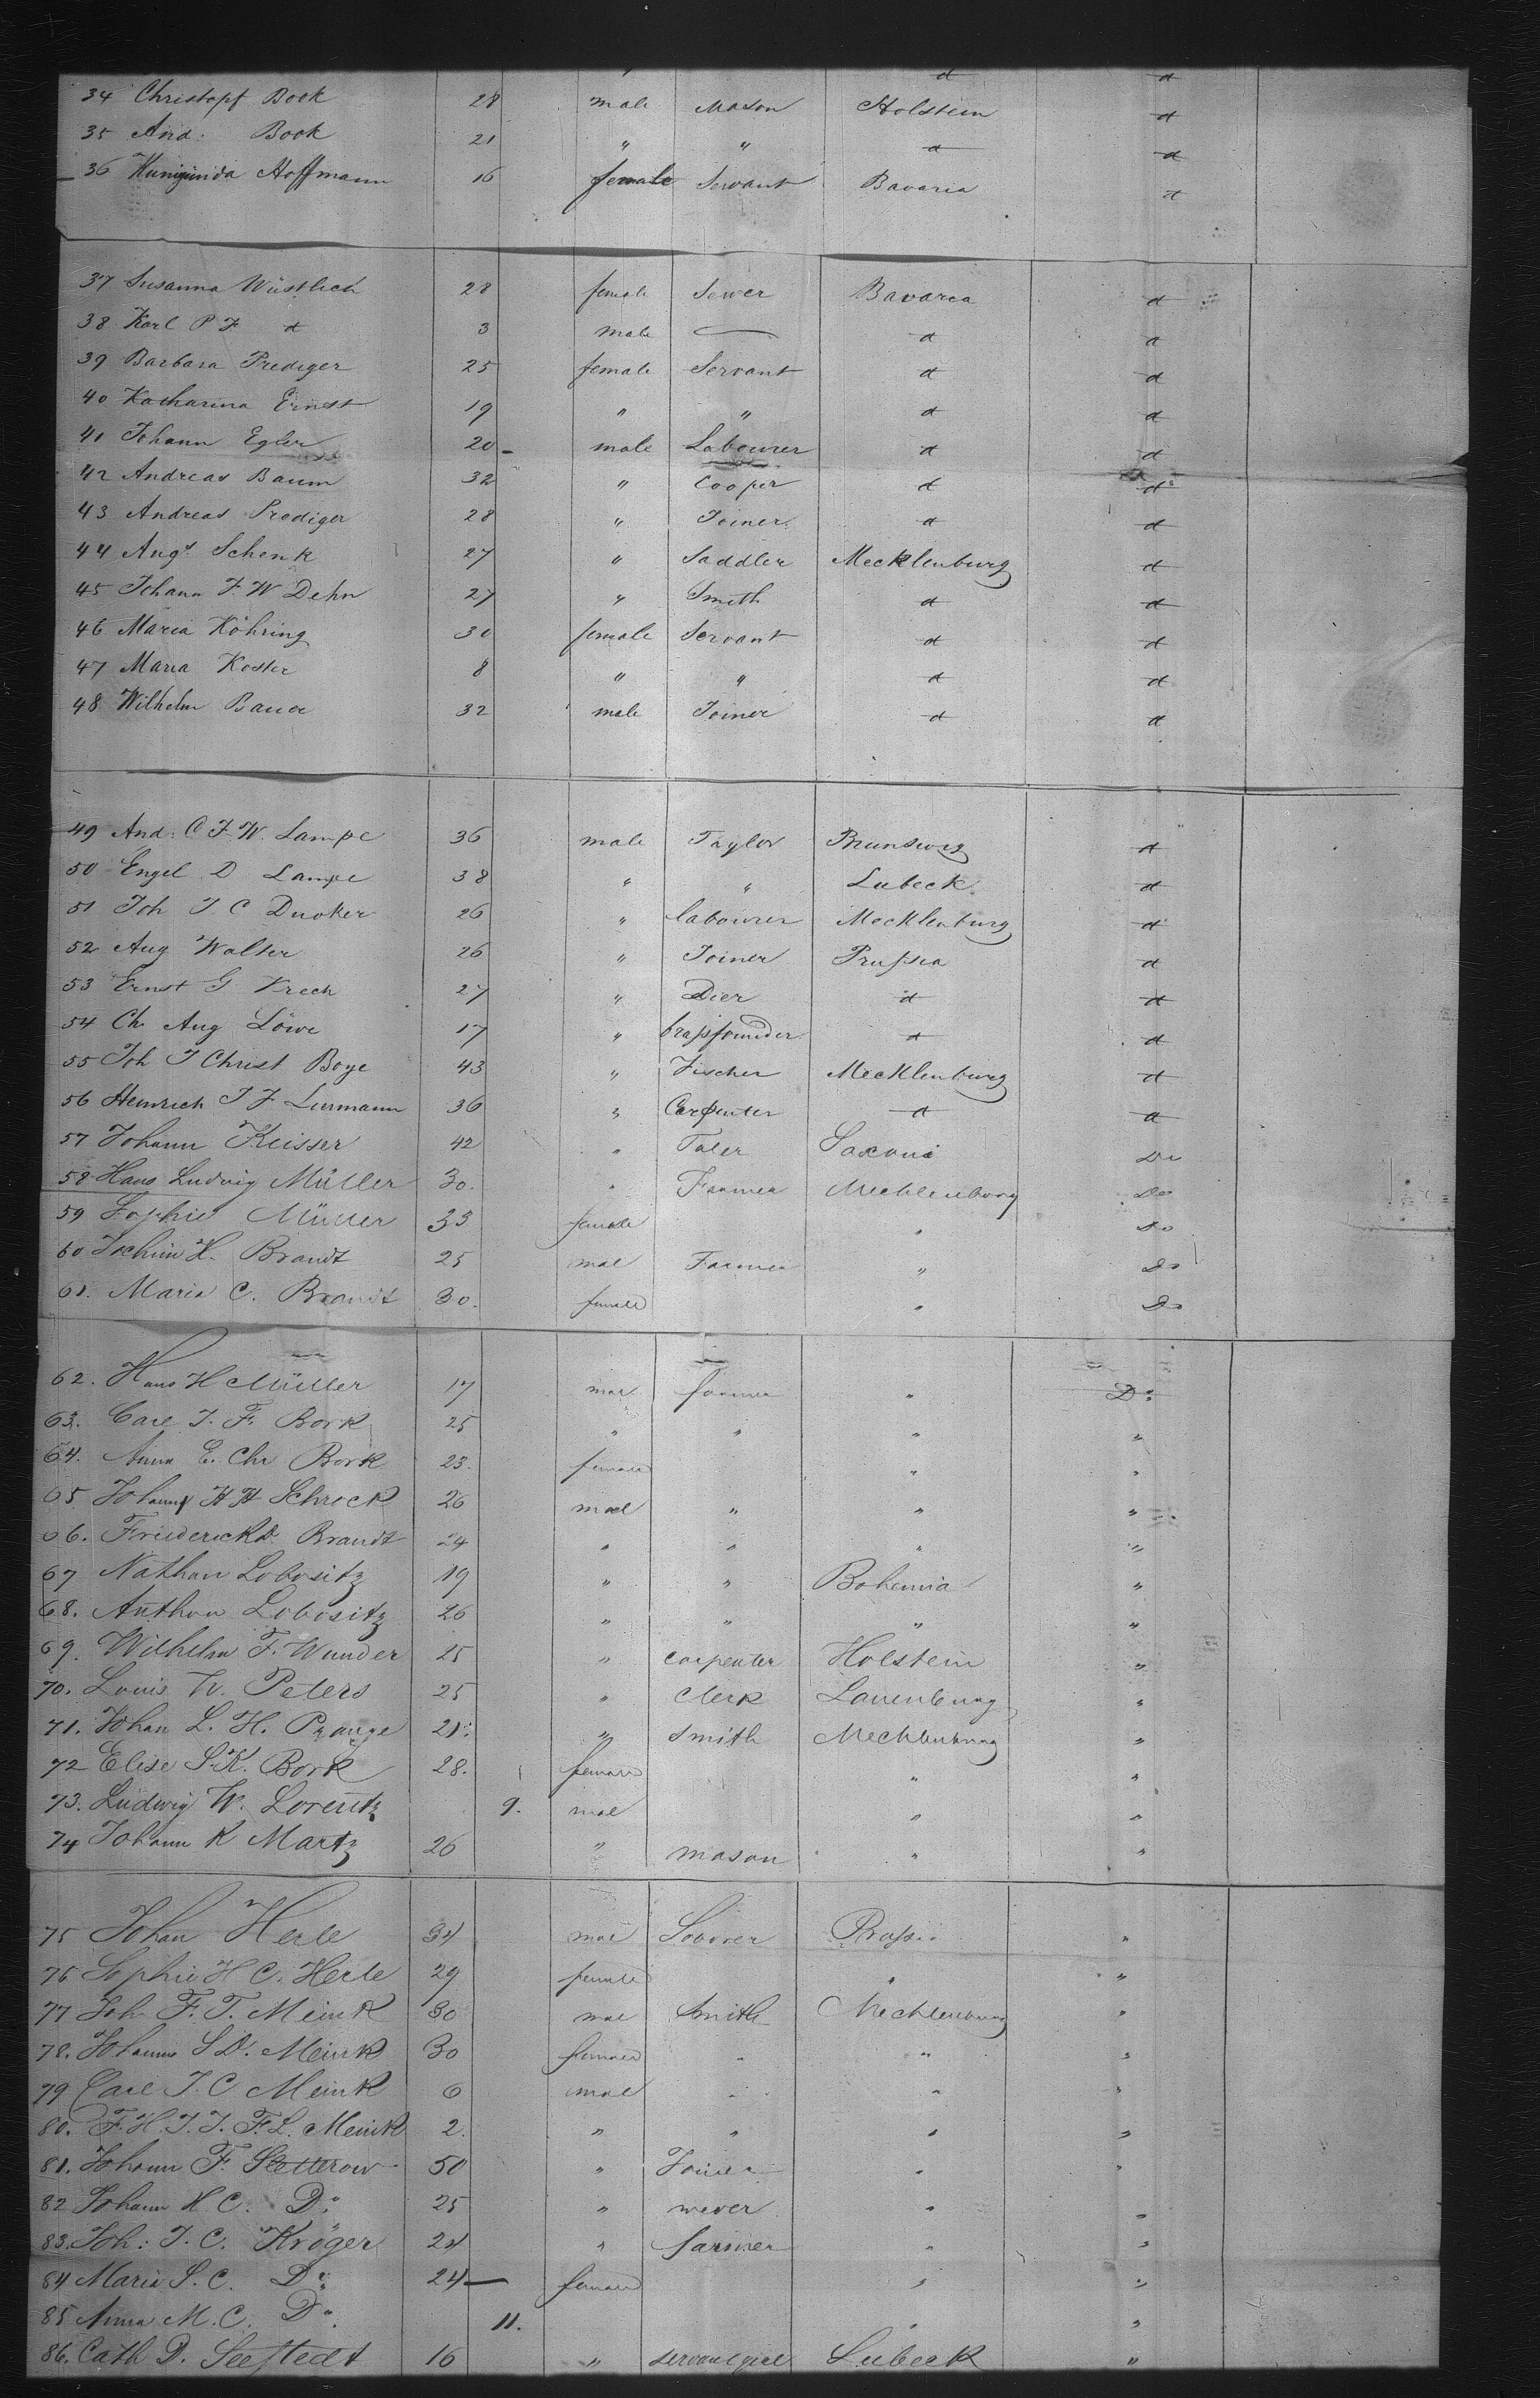 d d
34 Christopf Book 28 male Mason Holstein d
35 And: Book 21 " " d d
36 Kunigunda Hoffmann 16 female Servant Bavaria d
37 Susanna Wüstlich 28 female Sewer Bavaria d
38 Karl P F d 3 male — d d
39 Barbara Prediger 25 female Servant d d
40 Katharina Ernst 19 " " d d
41 Johann Egler 20 - male Labourer d d
42 Andreas Baum 32 " Cooper d d
43 Andreas Prediger 28 " Joiner d d
44 Augt Schenk 27 " Saddler Mecklenburg d
45 Johann F. W Dehn 27 " Smith d d
46 Maria Köhring 30 female Servant d d
47 Maria Koster 8 " " d d
48 Wilhelm Bauer 32 male Joiner d d
49 And: C F. W. Lampe 36 male Taylor Brunswig d
50 Engel D Lampe 38 " " Lubeck d
51 Joh J. C Duoker 26 " labourer Mecklenburg d
52 Aug Walter 26 " Joiner Prussia d
53 Ernst G Krech 27 " Dier d d
54 Ch Aug Löwe 17 " brassfounder d d
55 Joh J Christ Boye 43 " Fischer Mecklenburg d
56 Heinrich J F Lurmann 36 " Carpenter d d
57 Johann Keisser 42 " Taler Saxoni Do
58 Hans Ludwig Müller 30. " Farmer Mechlenburg Do
59 Sophie Müller 33 female " Do
60 Jochim H. Brandt 25 mal Farmer " Do
61. Maria C. Brandt 30. female " Do
62. Hans H Müller 17 mal farmer " Do
63. Carl J. F. Bork 25 " " " "
64. Anna E. Chr Bork 23. female " "
65 Johann H H Schrock 26 mael " " "
66. Friederick D. Brandt 24 " " " "
67 Nathan Lobositz 19 " " Bohemia "
68. Anthon Lobositz 26 " " " "
69. Wilhelm F. Wunder 25 " carpenter Holstein "
70. Louis W. Peters 25 " Clerk Lauenburg "
71. Johan L. H. Prange 21. " Smith Mechlenburg "
72 Elise S. K. Bork 28. female " "
73. Ludwig W. Lorentz 9. mal " "
74 Johann K Martz 26 " mason " "
75 Johan Herle 34 mal Prussi "
76 Sophie H C. Herle 29 female " "
77 Joh F. T. Meink 30 mal Smith Mechlenburg "
78. Johanna S D. Meink 30 female " " "
79 Carl J. C Meink 6 mal " " "
80. F. H. J. J. F. L. Meink 2. " " " "
81. Johann F. Stetterow 50 " Joiner " "
82 Johann H. C. Do 25 " wever " "
83. Joh: J. C. Kröger 24 " farmer " "
84 Maria S. C. Do 24 — female " "
85 Anna M. C. Do 11. " "
86. Cath D. Seestedt 16 " servantgirl Lübeck "